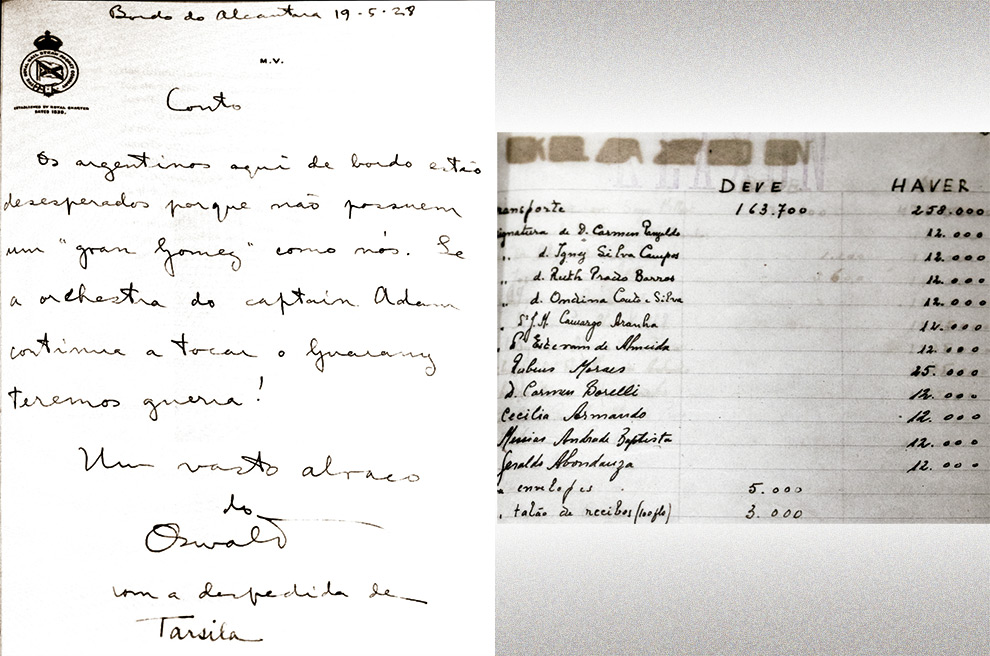 Bordo do Alcantara 19-5-28
M.V.
ESTABLISHED BY ROYAL CHARTER
DATED 1839.
Conto
Os argentinos aqui de bordo estão
desesperados porque não possuem
um "gran Gomez" como nós. Se
a orchestra do captain Adam
continua a tocar o Guarany
teremos guerra!
Um vasto abraço
do
Oswald
com a despedida de
Tarsila
DEVE HAVER
ransporte 163.700 258.000
ignatura de D. Carmen 12.000
" d. Ignez Silva Campos 12.000
" d. Ruth Prado Barros 12.000
" d. Ondina Couto e Silva 12.000
" Camargo Aranha 12.000
" Estevam de Almeida 12.000
Rubens Moraes 25.000
D. Carmen Borelli 12.000
Cecilia Armando 12.000
Messias Andrade Baptista 12.000
Geraldo Abondanza 12.000
envelopes 5.000
talão de recibos (100 fls) 3.000